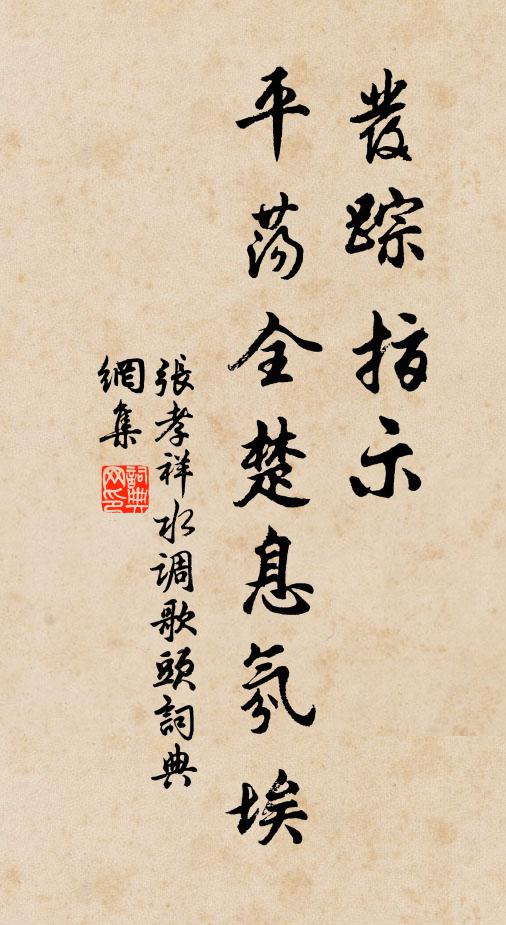 發踪指示
平蕩全楚息氛埃
張孝祥水调歌頭詞典
網集
詞典
网印